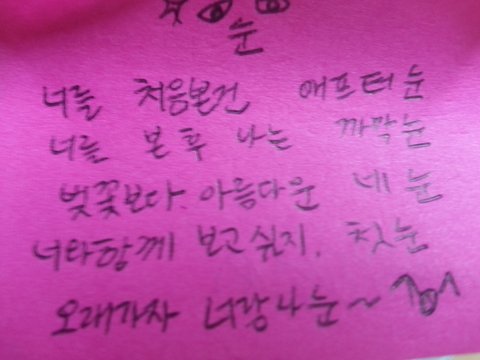 눈
너를 처음본건 애프터눈
너를 본 후 나는 까막눈
벚꽃보다 아름다운 네 눈
너와함께 보고싶지, 첫눈
오래가자 너랑나눈~